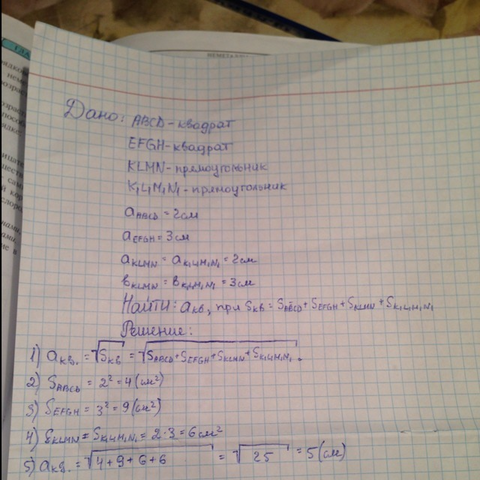 Дано: ABCD-квадрат
EFGH-квадрат
KLMN-прямоугольник
K₁L₁M₁N₁-прямоугольник
a_ABCD = 2см
a_EFGH = 3см
a_KLMN = a_K₁L₁M₁N₁ = 2см
в_KLMN = в_K₁L₁M₁N₁ = 3см
Найти: a_кв, при S_кв = S_ABCD + S_EFGH + S_KLMN + S_K₁L₁M₁N₁
Решение:
1) a_кв. = √S_кв = √S_ABCD + S_EFGH + S_KLMN + S_K₁L₁M₁N₁.
2) S_ABCD = 2² = 4(см²)
3) S_EFGH = 3² = 9(см²)
4) S_KLMN = S_K₁L₁M₁N₁ = 2·3 = 6см²
5) a_кв. = √4+9+6+6 = √25 = 5(см)